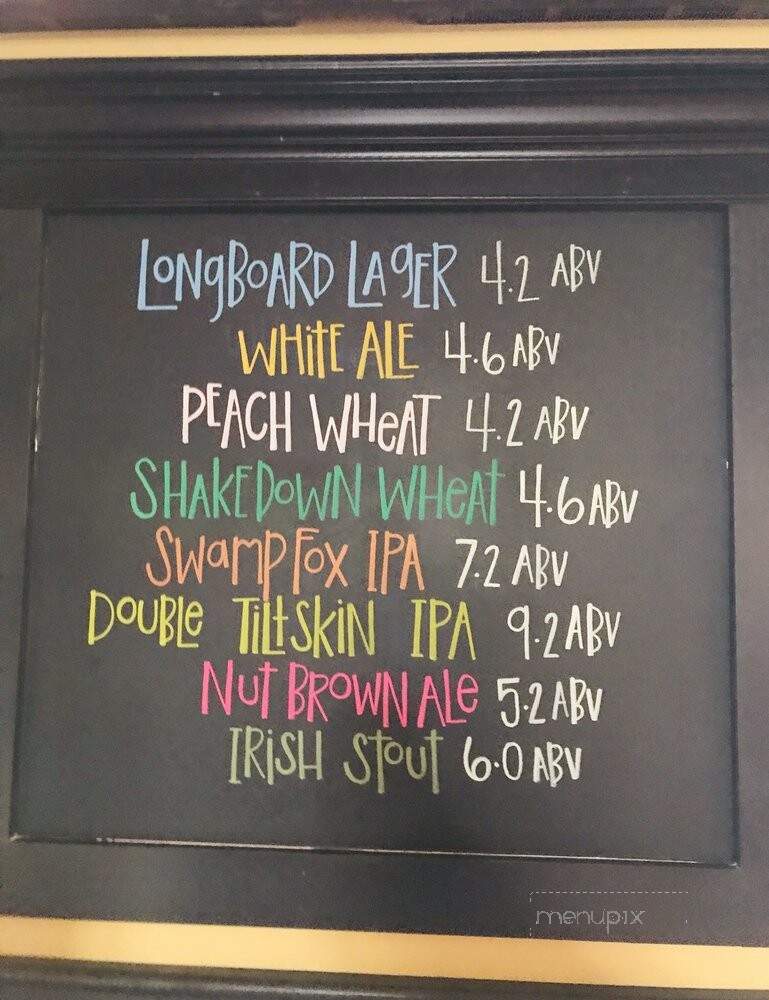 LONGBOARD LAGER 4.2 ABV
WHITE ALE 4.6 ABV
PEACH WHEAT 4.2 ABV
SHAKEDOWN WHEAT 4.6 ABV
SWAMP FOX IPA 7.2 ABV
DOUBLE TILTSKIN IPA 9.2 ABV
NUT BROWN ALE 5.2 ABV
IRISH STOUT 6.0 ABV
menupix